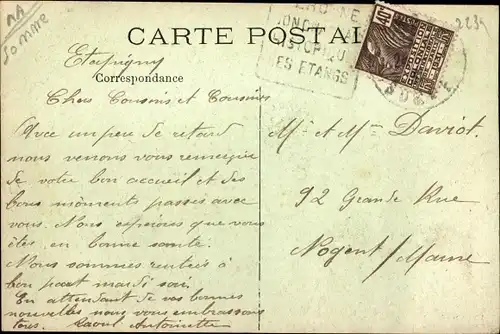 AA
Somme
2234
CARTE POSTALE
Eterpigny
Correspondance
PERONNE
MONU
HISTORIQUE
SES ETANGS
40c
POSTES
Chers Cousins et Cousines
Avec un peu de retard
nous venons vous remercier
de votre bon accueil et des
bons moments passés avec
vous. Nous espérons que vous
êtes en bonne santé.
Nous sommes rentrés à
bon port mardi soir.
En attendant de vos bonnes
nouvelles nous vous embrassons
tous. Raoul Antoinette
Mr et Mme Daviot.
92 Grande Rue
Nogent / Marne